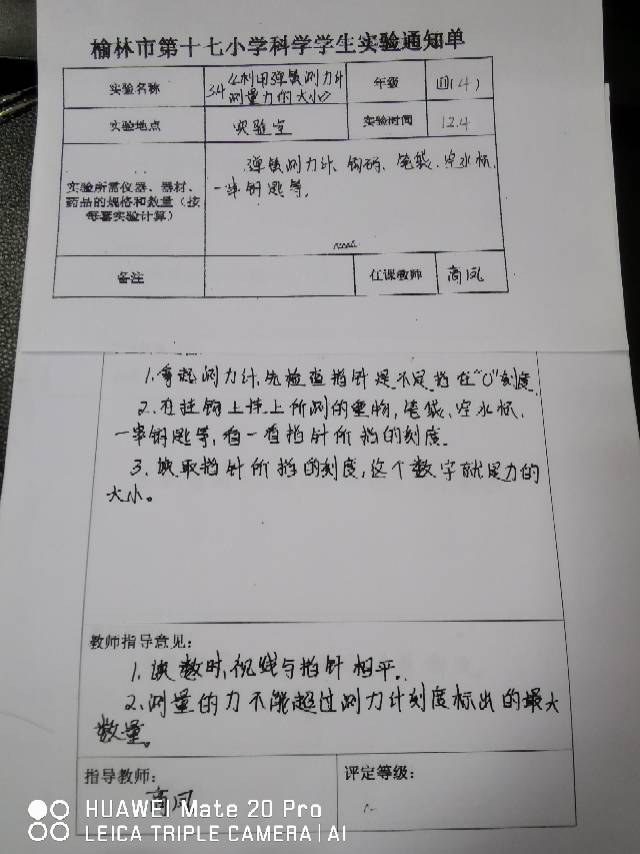 榆林市第十七小学科学学生实验通知单
实验名称
34《利用弹簧测力计
测量力的大小》
年级
四(4)
实验地点
实验室
实验时间
12.4
实验所需仪器、器材、
药品的规格和数量（按
每署实验计算）
弹簧测力计、钩码、笔袋、空水杯、
一串钥匙等。
备注
任课教师
高凤
1.拿起测力计,先检查指针是不是指在"0"刻度.
2.在挂钩上挂上所测的重物,笔袋、空水杯、
一串钥匙等,看一看指针所指的刻度.
3.读取指针所指的刻度,这个数字就是力的
大小。
教师指导意见:
1.读数时,视线与指针相平.
2.测量的力不能超过测力计刻度标出的最大
数量。
指导教师:
高凤
评定等级:
HUAWEI Mate 20 Pro
LEICA TRIPLE CAMERA | AI